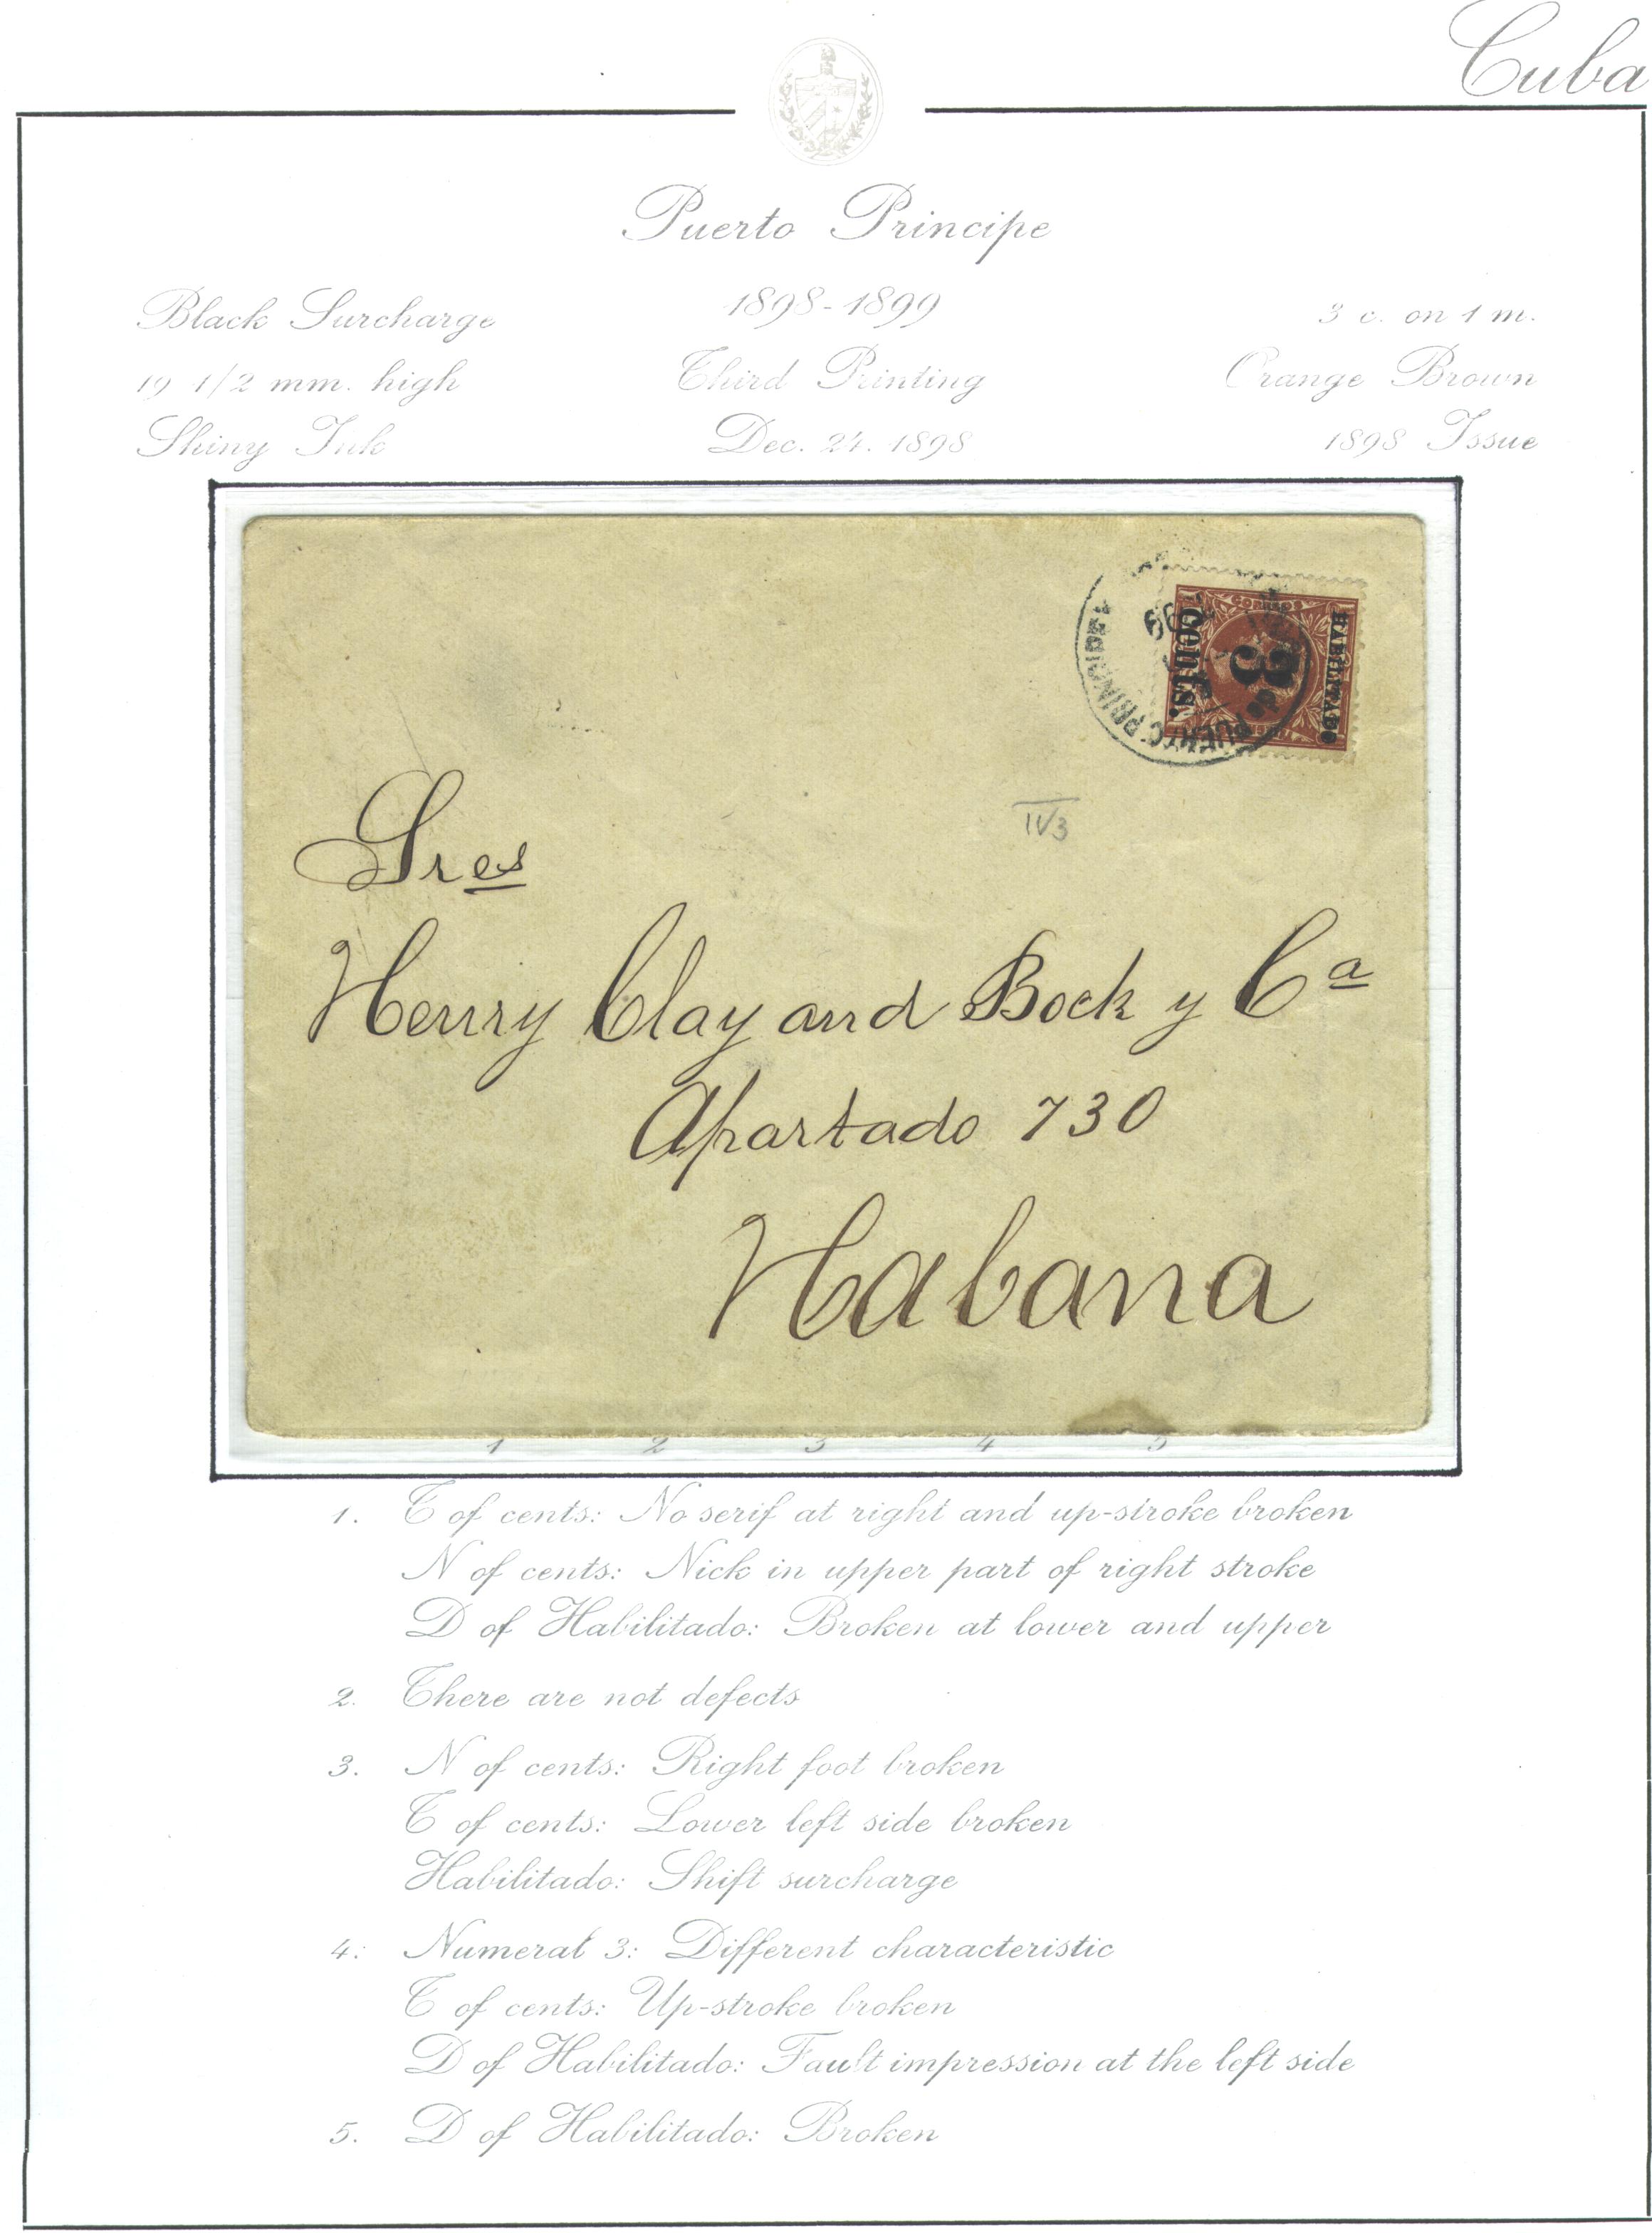 Cuba
Puerto Principe
Black Surcharge
1898-1899
3 c. on 1 m.
19 1/2 mm. high
Third Printing
Orange Brown
Shiny Ink
Dec. 24. 1898
1898 Issue
HABILITADO
3
cents.
CORREOS
99
PUERTO PRINCIPE
IV3
Sres
Henry Clay and Bock y Ca
Apartado 730
Habana
1 2 3 4 5
1. T of cents: No serif at right and up-stroke broken
N of cents: Nick in upper part of right stroke
D of Habilitado: Broken at lower and upper
2. There are not defects
3. N of cents: Right foot broken
T of cents: Lower left side broken
Habilitado: Shift surcharge
4: Numeral 3: Different characteristic
T of cents: Up-stroke broken
D of Habilitado: Fault impression at the left side
5. D of Habilitado: Broken